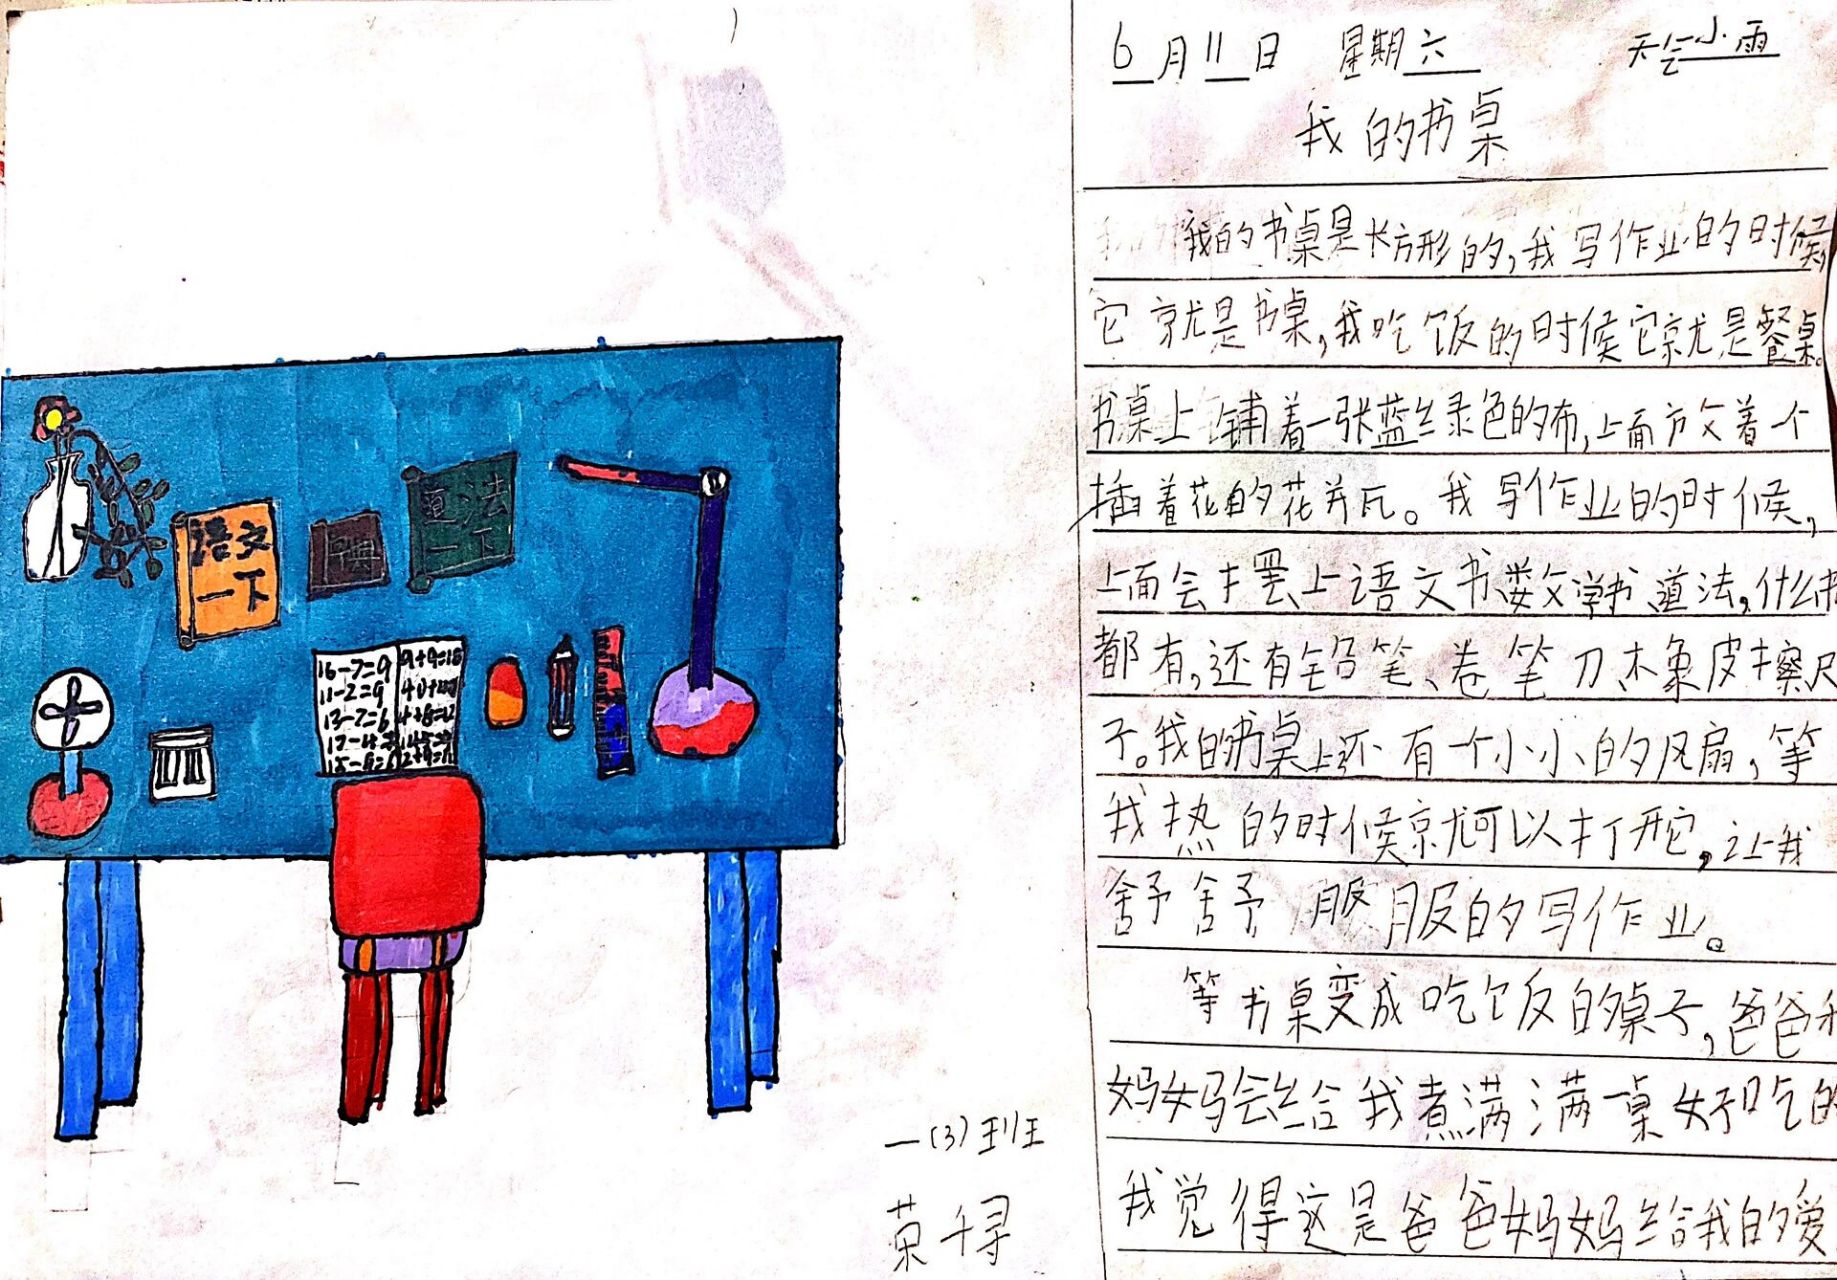 6月11日 星期六 天气小雨
我的书桌
我的书桌是长方形的,我写作业的时候,
它就是书桌,我吃饭的时候它就是餐桌。
书桌上铺着一张蓝绿色的布,上面放着个
插着花的花瓶。我写作业的时候,
上面会摆上语文书、数学书、道法,什么书
都有,还有铅笔、卷笔刀、木象皮擦、尺
子。我的书桌上还有一个小小的风扇,等
我热的时候就可以打开它,让我
舒舒服服的写作业。
等书桌变成吃饭的桌子,爸爸和
妈妈会给我煮满满一桌好吃的
我觉得这是爸爸妈妈给我的爱
语文
一下
字典
道法
一下
16-7=9 9+9=18
11-2=9
13-7=6 4+8=12
一(3)班
荣千寻